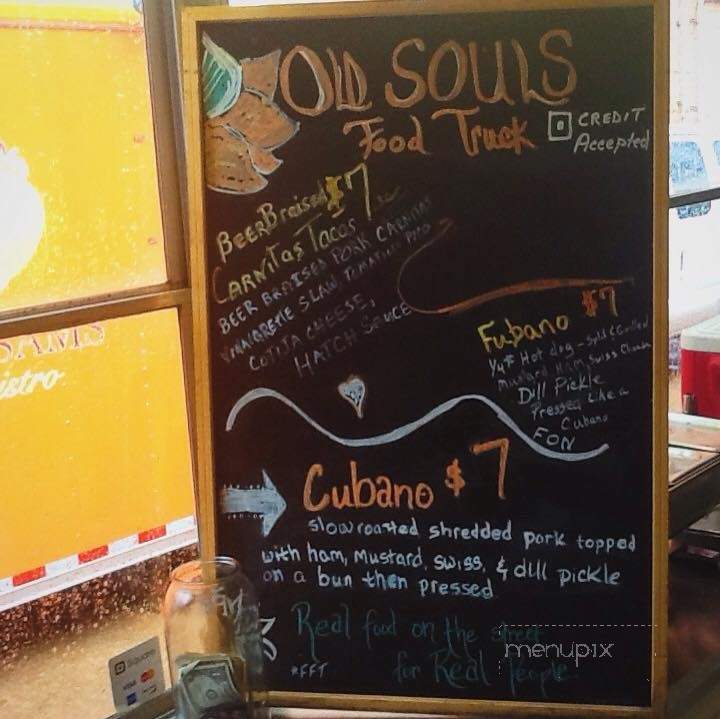 OLD SOULS
Food Truck
CREDIT
Accepted
BEER Braised $7
CARNITAS TACOS
BEER BRAISED PORK CARNITAS
VINAIGRETTE SLAW, TOMATILLO PICO
COTIJA CHEESE,
HATCH SAUCE
Fubano $7
1/4# Hot dog - Split & Grilled
Mustard Ham, Swiss Cheese
Dill Pickle
Pressed Like a
Cubano
FON
Cubano $7
slow roasted shredded pork topped
with ham, Mustard, swiss, & dill pickle
on a bun then pressed
Real food on the street
for Real People
*FFT
menupix
Square
VISA
istro